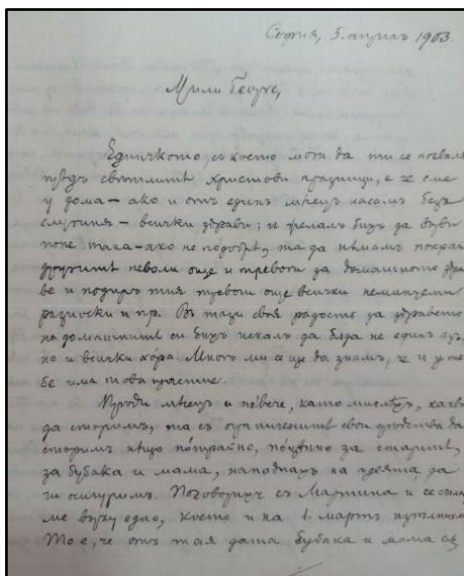 София, 5. априлъ 1903.
Мили Георге,
Едничкото, съ което мога да ти се похваля
прѣдъ свѣтлитѣ христови праздници, е че сме
у дома – ако и отъ единъ мѣсецъ насамъ безъ
слугиня – всички здрави; и желалъ бихъ да върви
поне така – ако не подобрѣ, та да нѣмамъ покрай
другитѣ неволи още и тревоги за домашното здра
ве и подиръ тия тревоги още всички неминуеми
разноски и пр. Въ тази своя радость за здравето
на домашнитѣ си бихъ искалъ да бѫда не единъ азъ,
но и всички хора. Много ми се ще да знамъ, че и у те
бе има това щастие.
Прѣди мѣсецъ и повече, като мислѣхъ, какво
да сторимъ, та съ ограниченитѣ свои срѣдства да
сторимъ нѣщо потрайно, поцѣнно за старитѣ,
за бубака и мама, нападнахъ на идеята, да
ги осигуримъ. Поговорихъ съ Мартина и се спог
ме върху едно, което и на 1. мартъ изпълнихме
То е, че отъ тая дата бубака и мама сѫ